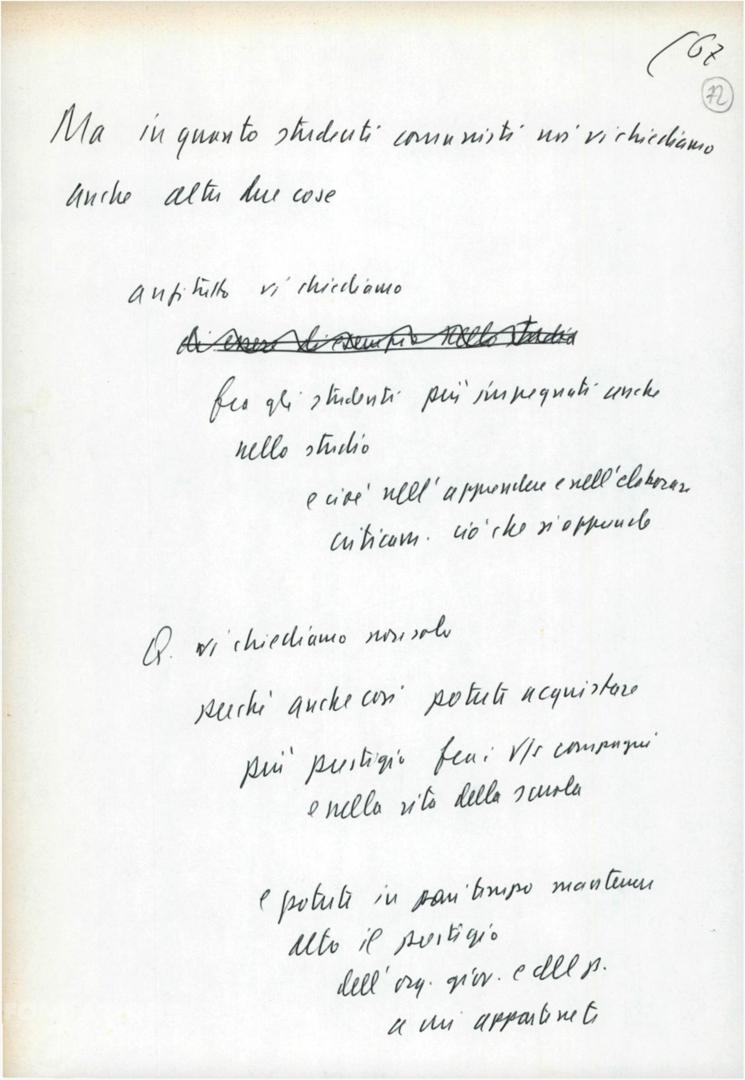 67
72
Ma in quanto studenti comunisti noi vi chiediamo
anche altre due cose
anzitutto vi chiediamo
di essere di esempio nello studio
fra gli studenti più impegnati anche
nello studio
e cioè nell'apprendere e nell'elaborare
criticam. ciò che si apprende
Q. vi chiediamo non solo
perché anche così potete acquistare
più prestigio fra i v/s compagni
e nella vita della scuola
e potete in pari tempo mantenere
alto il prestigio
dell'org. giov. e dell p.
a cui appartenete